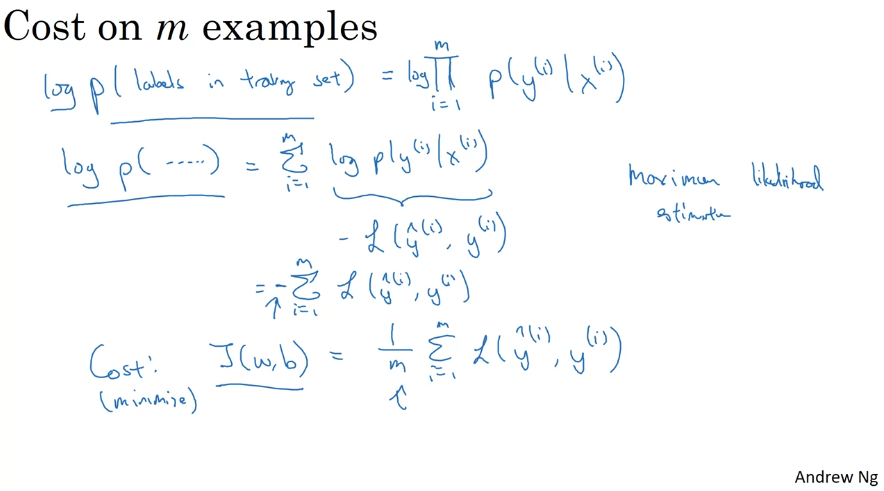 Cost on m examples
log p(labels in training set) = log ∏_{i=1}^{m} p(y^{(i)}|x^{(i)})
log p(.....) = ∑_{i=1}^{m} log p(y^{(i)}|x^{(i)})
Maximum likelihood
estimation
- L(ŷ^{(i)}, y^{(i)})
= - ∑_{i=1}^{m} L(ŷ^{(i)}, y^{(i)})
Cost: J(w,b) = 1/m ∑_{i=1}^{m} L(ŷ^{(i)}, y^{(i)})
(minimize)
Andrew Ng